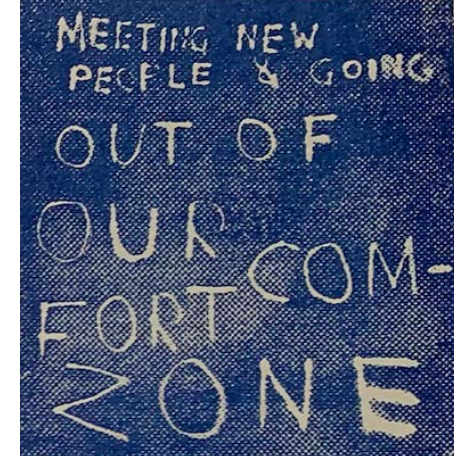 MEETING NEW
PEOPLE & GOING
OUT OF
OUR COM-
FORT
ZONE